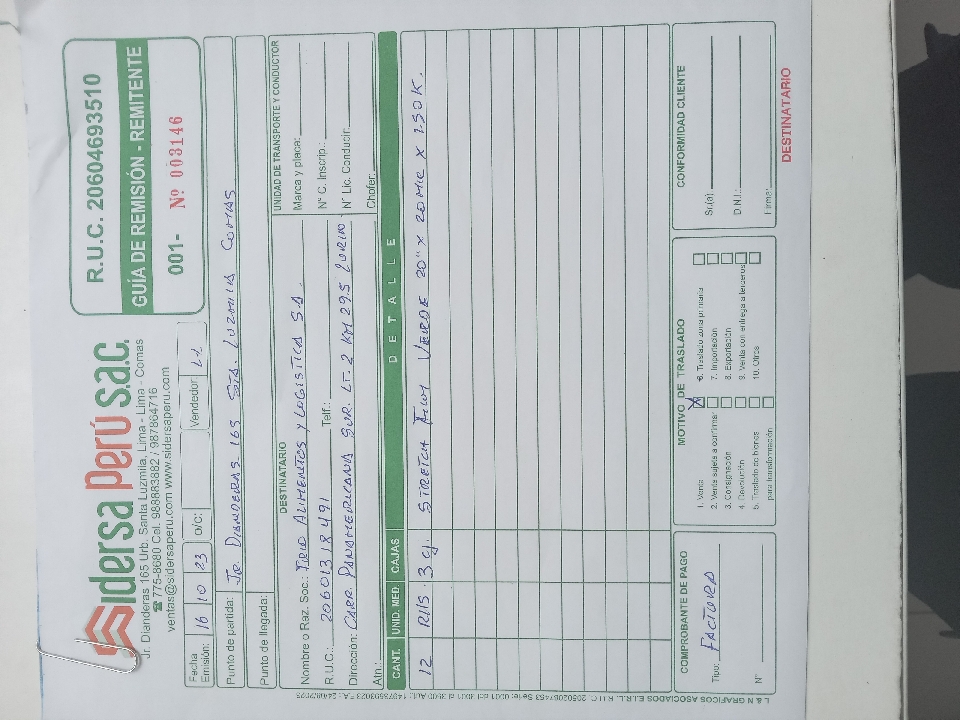 Sidersa Perú s.a.c.
Jr. Dianderas 165 Urb. Santa Luzmila, Lima - Lima - Comas
775-8680 Cel. 988863882 / 987864716
ventas@sidersaperu.com www.sidersaperu.com
R.U.C. 20604693510
GUÍA DE REMISIÓN - REMITENTE
001- Nº 003146
Fecha Emisión: 16 10 23 o/c: Vendedor: LL
Punto de partida: Jr DIANDERAS 165 STA. LUZMILA COMAS
Punto de llegada:
DESTINATARIO
Nombre o Raz. Soc.: ALIMENTOS Y LOGISTICA SA
R.U.C.: 20601318491 Telf.:
Dirección: CARR. PANAMERICANA SUR. LT. 2 KM 29.5 LURIN
Atn.:
UNIDAD DE TRANSPORTE Y CONDUCTOR
Marca y placa:
Nº C. Inscrip.:
Nº Lic. Conducir:
Chofer:
CANT. UNID. MED. CAJAS DETALLE
12 Rlls 3 cj. STRETCH FILM VERDE 20" x 20 MIC x 1.50K.
COMPROBANTE DE PAGO
Tipo: FACTURA
Nº
MOTIVO DE TRASLADO
1. Venta X
2. Venta sujeta a confirmar
3. Consignación
4. Devolución
5. Traslado de bienes
para transformación
6. Traslado zona primaria
7. Importación
8. Exportación
9. Venta con entrega a terceros
10. Otros
CONFORMIDAD CLIENTE
Sr.(a)
D.N.I.:
Firma:
DESTINATARIO
L & N GRAFICOS ASOCIADOS E.I.R.L. R.U.C.